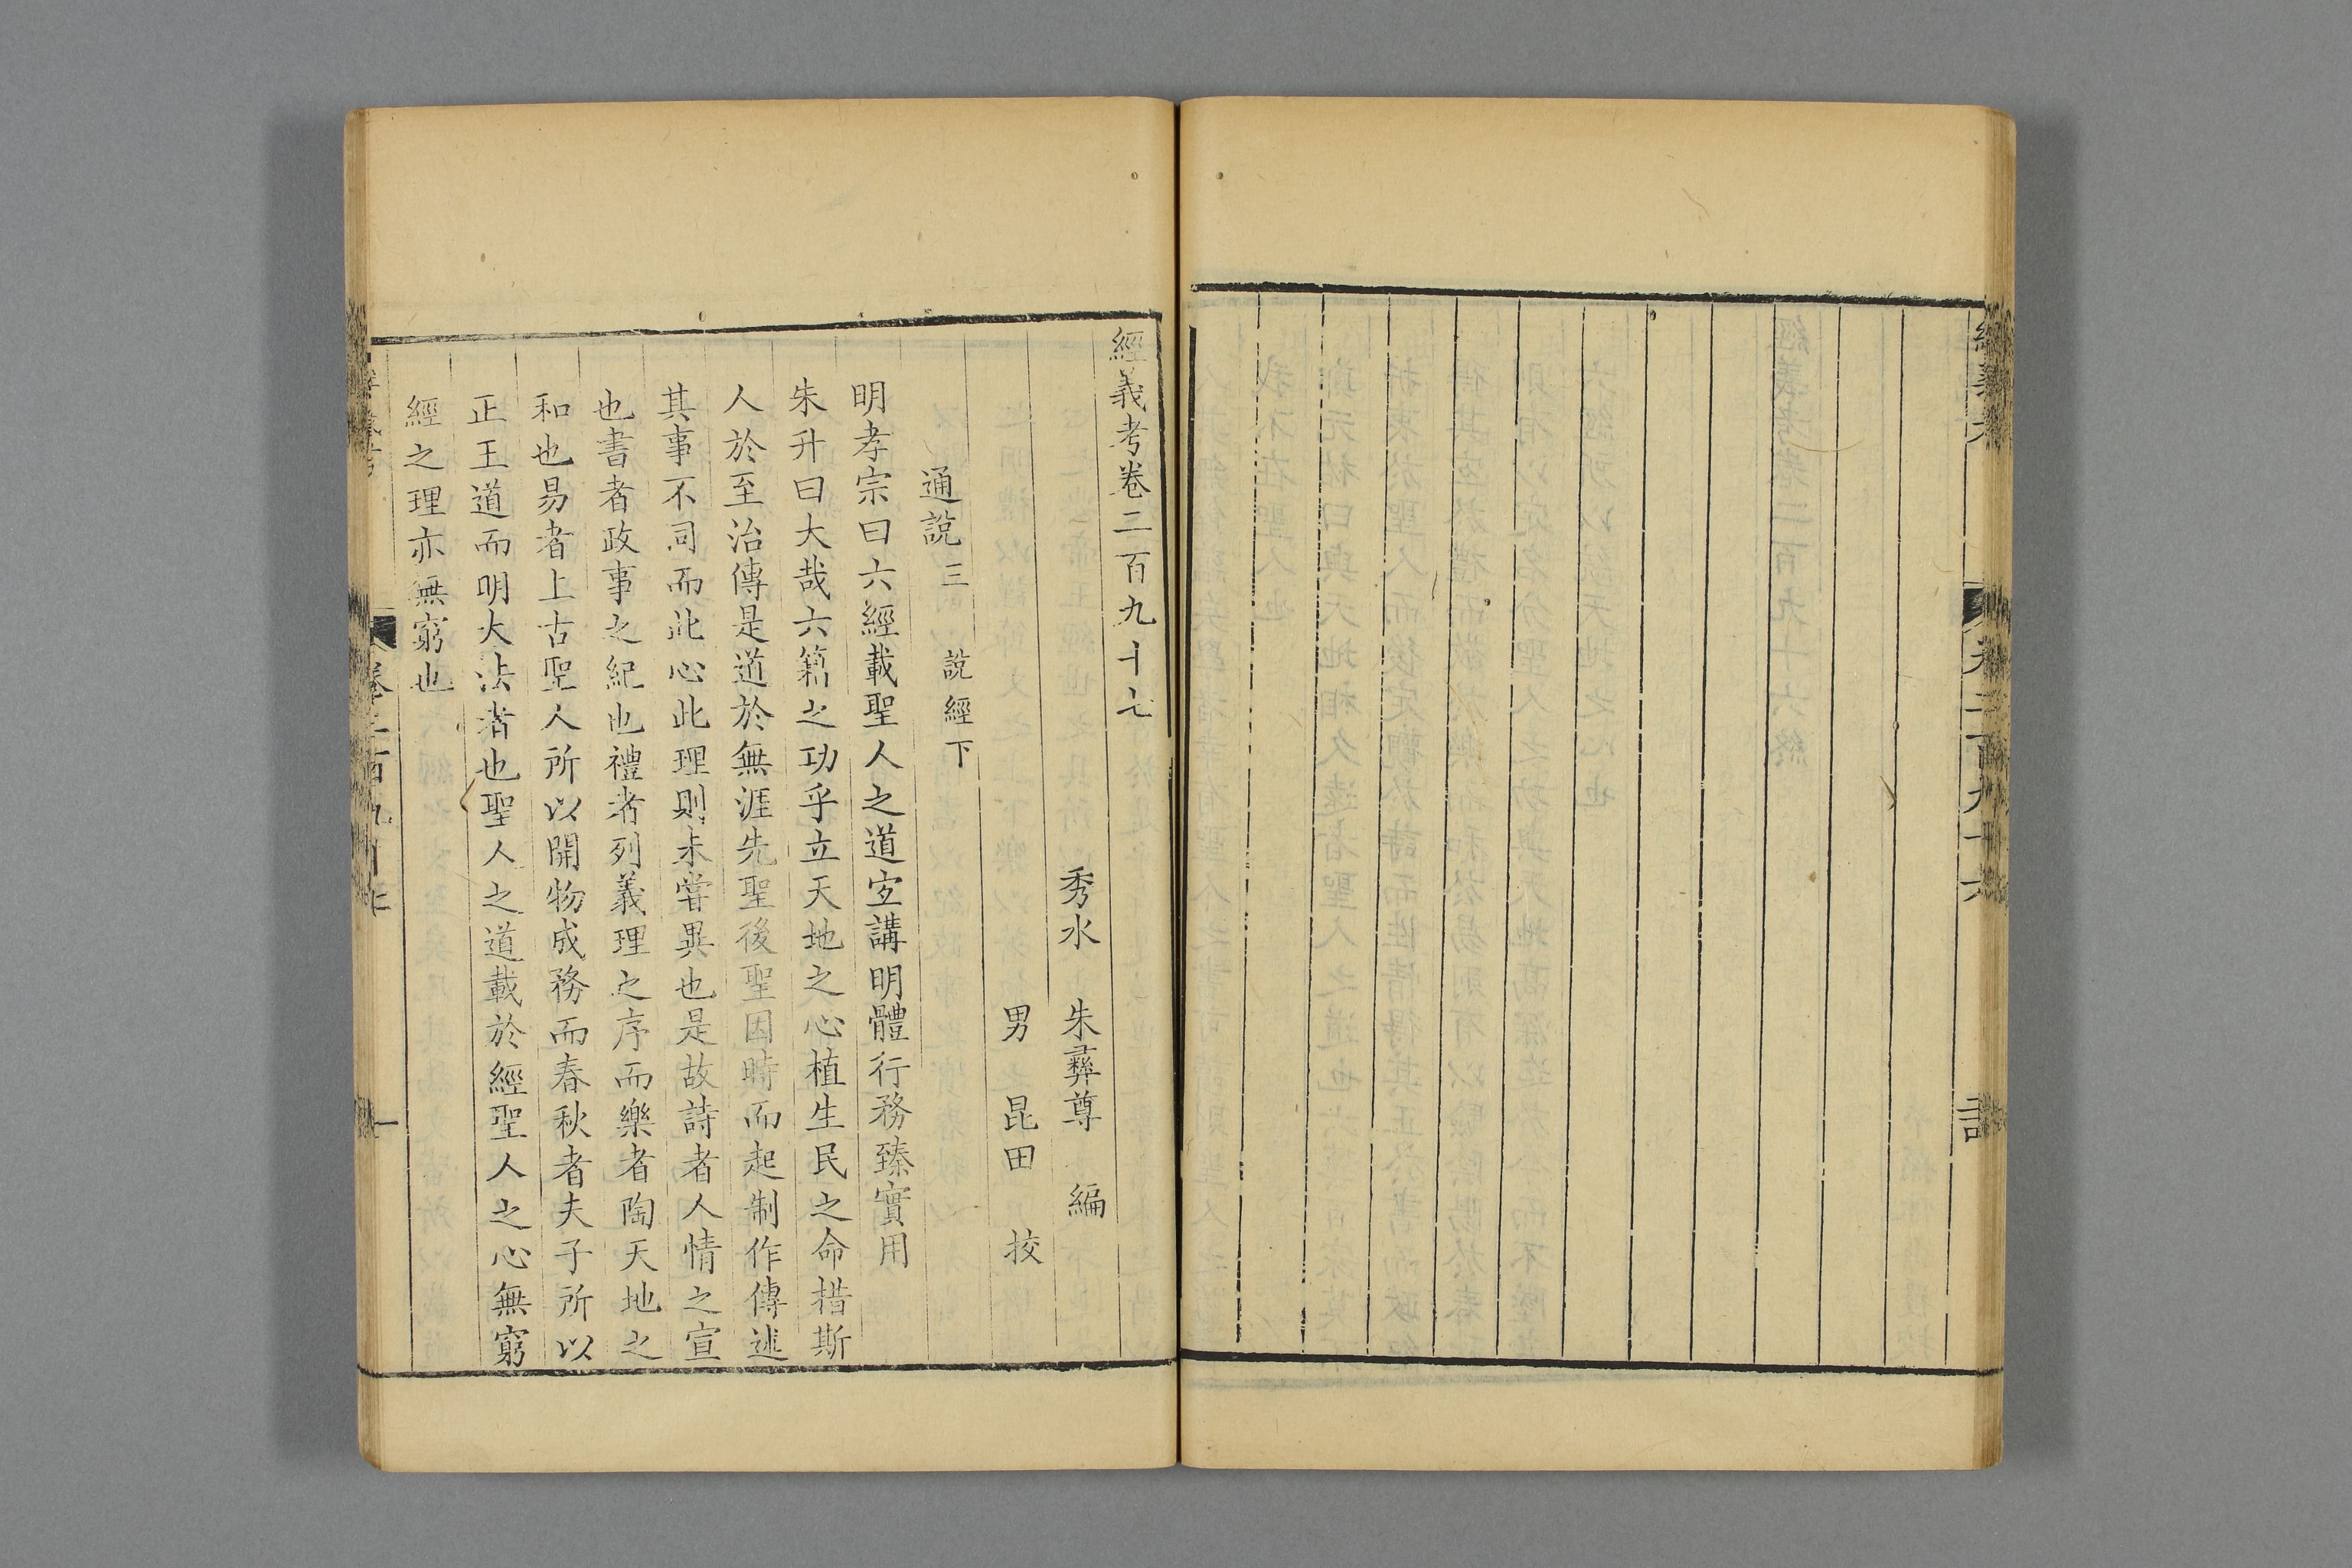 經義考卷二百九十七
秀水 朱彝尊 編
男 昆田 挍
通說三 說經下
明孝宗曰六經載聖人之道宜講明體行務臻實用
朱升曰大哉六籍之功乎立天地之心植生民之命措斯
人於至治傳是道於無涯先聖後聖因時而起制作傳述
其事不同而此心此理則未嘗異也是故詩者人情之宣
也書者政事之紀也禮者列義理之序而樂者陶天地之
和也易者上古聖人所以開物成務而春秋者夫子所以
正王道而明大法者也聖人之道載於經聖人之心無窮
經之理亦無窮也